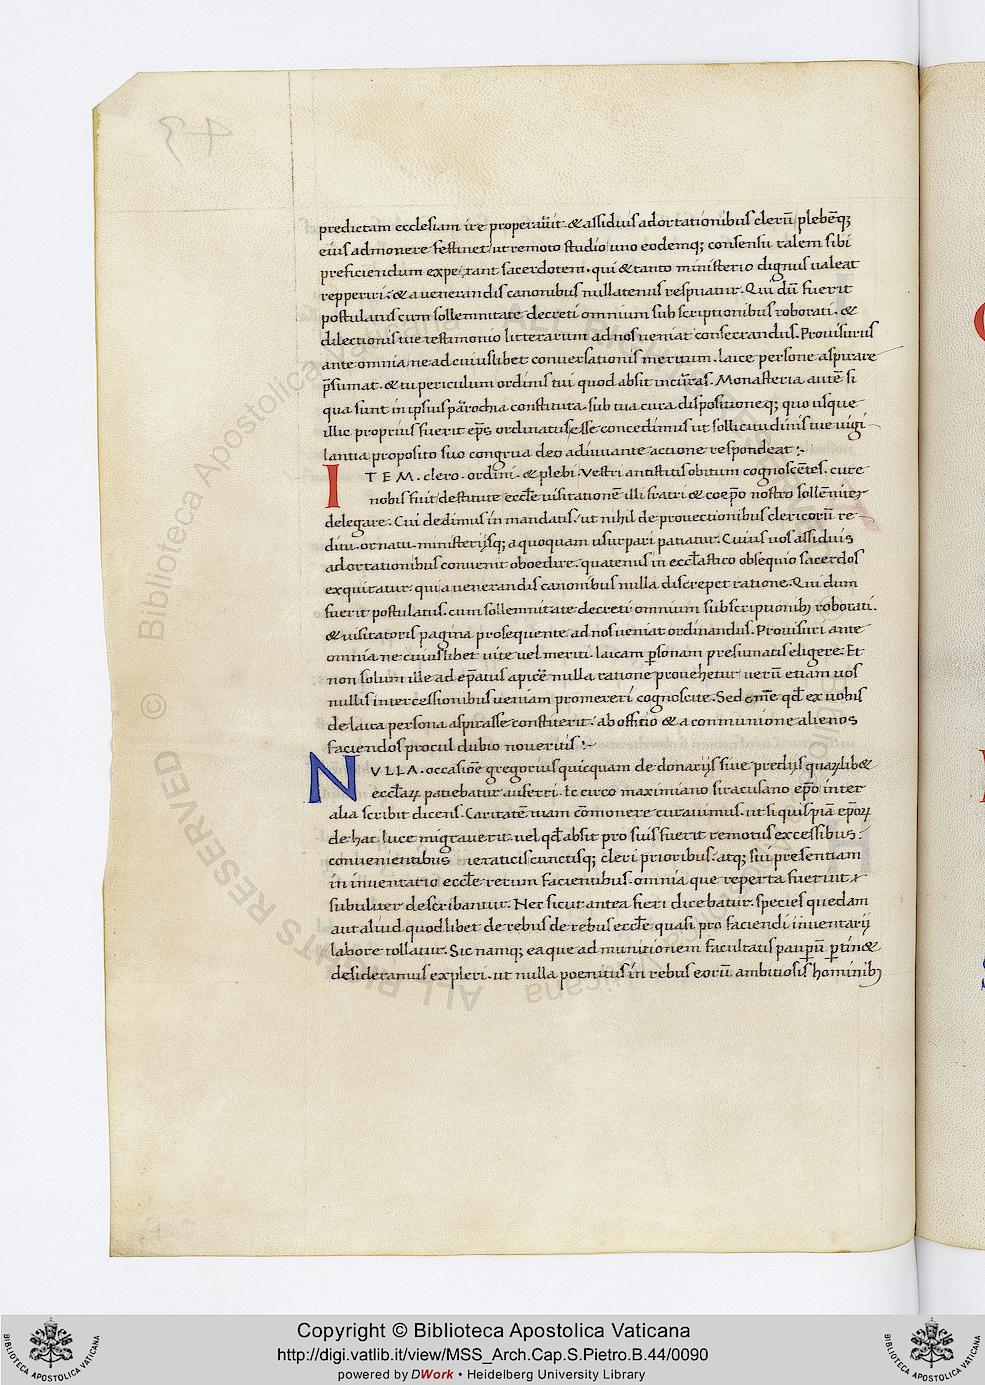 43
predictam ecclesiam ire properauit & assiduis adortationibus clerū plebēq;
eius admonere festinet ut remoto studio uno eodemq; consensu talem sibi
preficiendum expetant sacerdotem. qui & tanto ministerio dignus ualeat
repperiri. & a uenerandis canonibus nullatenus respuatur. Qui dū fuerit
postulatus cum sollemnitate decreti omnium subscriptionibus roborati. &
dilectionis tue testimonio litterarum ad nos ueniat consecrandus. Prouisurus
ante omnia ne ad cuiuslibet conuersationis meritum. laice persone aspirare
p̄sumat. & tu periculum ordinis tui quod absit incurras. Monasteria autē si
qua sunt in ipsius parochia constituta. sub tua cura dispositioneq; quo usque
illic proprius fuerit ep̄s ordinatus esse concedimus ut sollicitudinis tue uigi
lantia proposito suo congrua deo adiuuante actione respondeat:.
ITEM. clero. ordini. & plebi. Vestri antistitis obitum cognoscētes. cure
nobis fuit destitute eccl̄e uisitationē illi fratri & coep̄o nostro sollēniter
delegare. Cui dedimus in mandatis. ut nihil de prouectionibus clericorū re
ditu. ornatu. ministerijsq; a quoquam usurpari patiatur. Cuius uos assiduis
adortationibus conuenit oboedire. quatenus in eccl̄astico obsequio sacerdos
exquiratur. qui a uenerandis canonibus nulla discrepet ratione. Qui dum
fuerit postulatus. cum sollemnitate decreti omnium subscriptionib; roborati.
& uisitatoris pagina prosequente ad nos ueniat ordinandus. Prouisuri ante
omnia ne cuiuslibet uite uel meriti. laicam p̄sonam presumatis eligere. Et
non solum ille ad ep̄atus apicē nulla ratione prouehetur uerū etiam uos
nullis intercessionibus ueniam promereri cognoscite. Sed om̄e qd̄ ex uobis
de laica persona aspirasse constiterit. ab offitio & a communione alienos
faciendos procul dubio noueritis:~
NVLLA. occasiōe gregorius quicquam de donarijs siue predijs quarūlib&
eccl̄arꝝ patiebatur auferri. Ic circo maximiano siracusano ep̄o inter
alia scribit dicens. Caritatē tuam cōmonere curauimus. ut si quispiā ep̄orꝝ
de hac luce migrauerit. uel qd̄ absit pro suis fuerit remotus excessibus:
conuenientibus ieraticis cunctisq; cleri prioribus. atq; sui presentiam
in inuentario eccl̄e rerum facientibus. omnia que reperta fuerint
subtiliter describantur. Nec sicut antea fieri dicebatur. species quedam
aut aliud quodlibet de rebus de rebus eccl̄e quasi pro faciendi inuentarij
labore tollatur. Sic namq; ea que ad munitionem facultatis paup̄ū p̄tin&
desideramus expleri. ut nulla poenitus in rebus eorū ambitiosis hominib;
© Biblioteca Apostolica Vaticana ALL RIGHTS RESERVED
Copyright © Biblioteca Apostolica Vaticana
http://digi.vatlib.it/view/MSS_Arch.Cap.S.Pietro.B.44/0090
powered by DWork • Heidelberg University Library
BIBLIOTECA APOSTOLICA VATICANA
BIBLIOTECA APOSTOLICA VATICANA